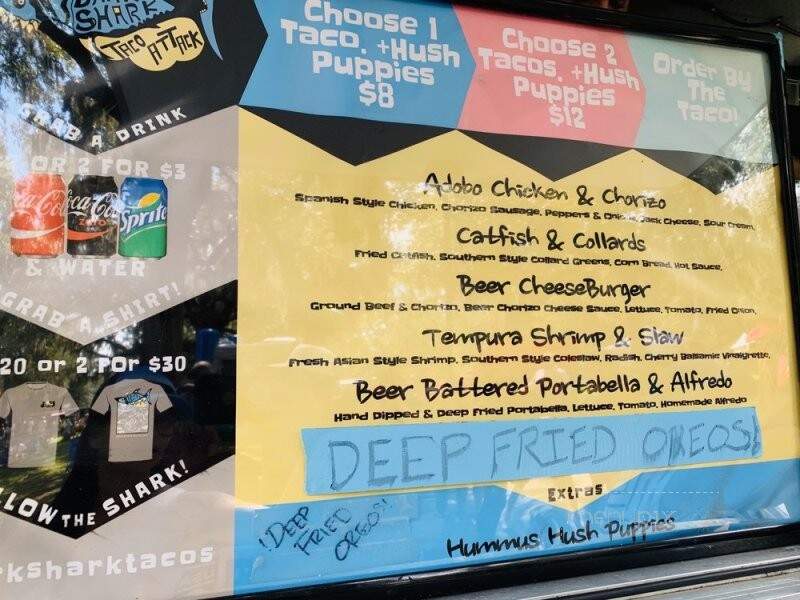 SHARK
TACO ATTACK
GRAB A DRINK
OR 2 FOR $3
Coca-Cola
Coca-Co
Sprite
& WATER
GRAB A SHIRT!
20 or 2 FOR $30
LLOW THE SHARK!
rksharktacos
Choose 1
Taco. +Hush
Puppies
$8
Choose 2
Tacos. +Hush
Puppies
$12
Order By
The
Taco!
Adobo Chicken & Chorizo
Spanish Style Chicken, Chorizo Sausage, Peppers & Onion, Jack Cheese, Sour Cream,
Catfish & Collards
Fried Catfish, Southern Style Collard Greens, Corn Bread, Hot Sauce,
Beer CheeseBurger
Ground Beef & Chorizo, Beer Chorizo Cheese Sauce, Lettuce, Tomato, Fried Onion,
Tempura Shrimp & Slaw
Fresh Asian Style Shrimp, Southern Style Coleslaw, Radish, Cherry Balsamic Vinaigrette,
Beer Battered Portabella & Alfredo
Hand Dipped & Deep Fried Portabella, Lettuce, Tomato, Homemade Alfredo
DEEP FRIED OREOS!
Extras
!DEEP
FRIED
OREOS!!
Hummus Hush Puppies